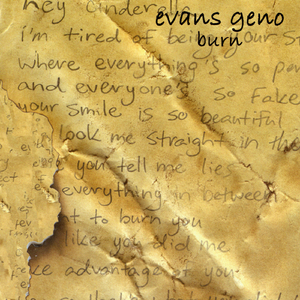 hey Cinderella
evans geno
burn
i'm tired of being in your
where everything's so
and everyone's so fake
your smile is so beautiful
look me straight in the
you tell me lies
everything in between
nt to burn you
like you did me
ke advantage of you